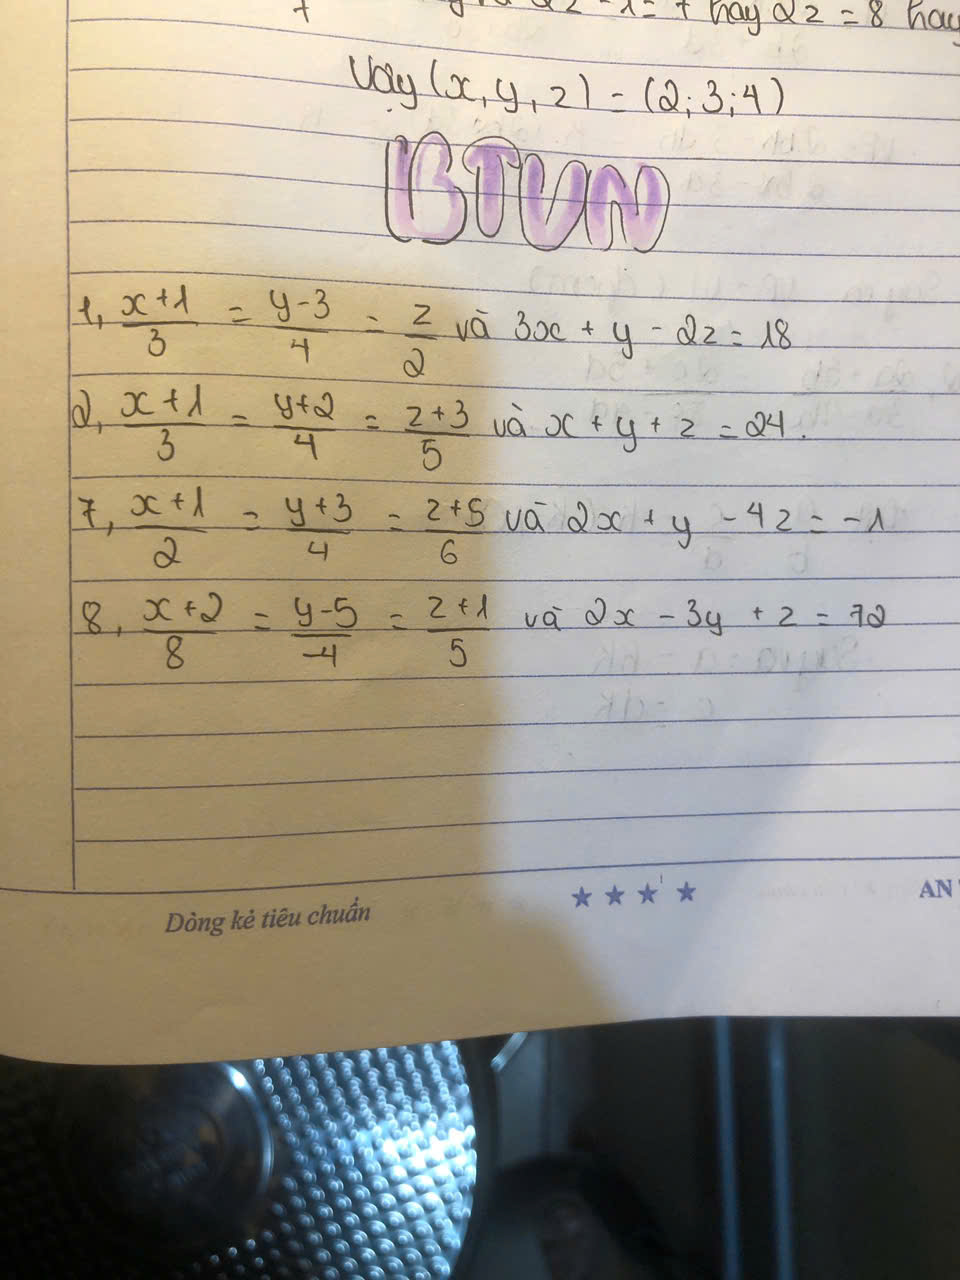 7 hay 2z = 8 hay
Vậy (x, y, z) = (2; 3; 4)
BTVN
1, x+1/3 = y-3/4 = z/2 và 3x + y - 2z = 18
2, x+1/3 = y+2/4 = z+3/5 và x + y + z = 24.
7, x+1/2 = y+3/4 = z+5/6 và 2x + y - 4z = -1
8, x+2/8 = y-5/-4 = z+1/5 và 2x - 3y + z = 72
Dòng kẻ tiêu chuẩn ★ ★ ★ ★ AN